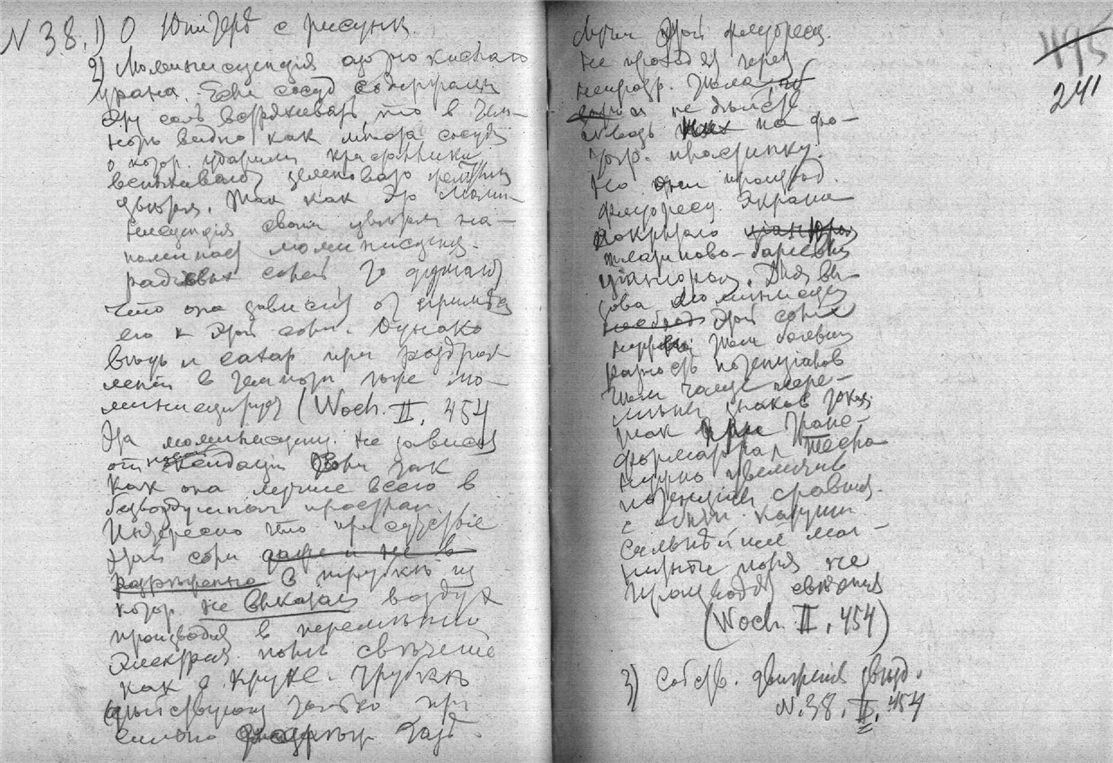 N 38. 1) О Юпитере с рисунк.
2) Люминисценция азотно кислаго
урана. Если сосуд содержащи
эту соль встряхивать то в тем-
ноте видно как места сосуда
о котор. ударили кристаллики
вспыхивают зеленоватожелтым
цветом. Так как эта люми-
нисценция своим цветом на-
поминает люминисценц.
радиевых солей то думают
что она зависит от примеси
его к этой соли. Однако
ведь и сахар при раздроб
лении в темноте тоже лю-
минисцирует (Woch. II, 454
Эта люминисценц. не зависит
от соли так
как она лучше всего в
безвоздушном простран.
Интересно что присутствие
этой соли даже и не в
разреженно в трубке из
котор не выкачан воздух
производит в переменном
электрич. поле свечение
как в трубке
действующ только при
сильно газе.
Лучи этой флуоресц.
не проходят через
непрозр. тела
не действ
на фо-
тогр. пластинку.
Но они производ.
флуоресц. экрана
покрытаго
платиново-бариевым
цианистым. Для вы-
зова люминисцен
этой соли
нужна чем большая
разность потенциалов
чем чаще пере-
мены знаков тока;
так при транс-
форматоре Тесла
нужно увеличив
потенциал сравнит.
с обыкн катушк
Сильнейшее маг-
нитное поле не
производит свечения
(Woch. II, 454)
3) Собств. движения звезд.
N. 38. II, 454
495
241